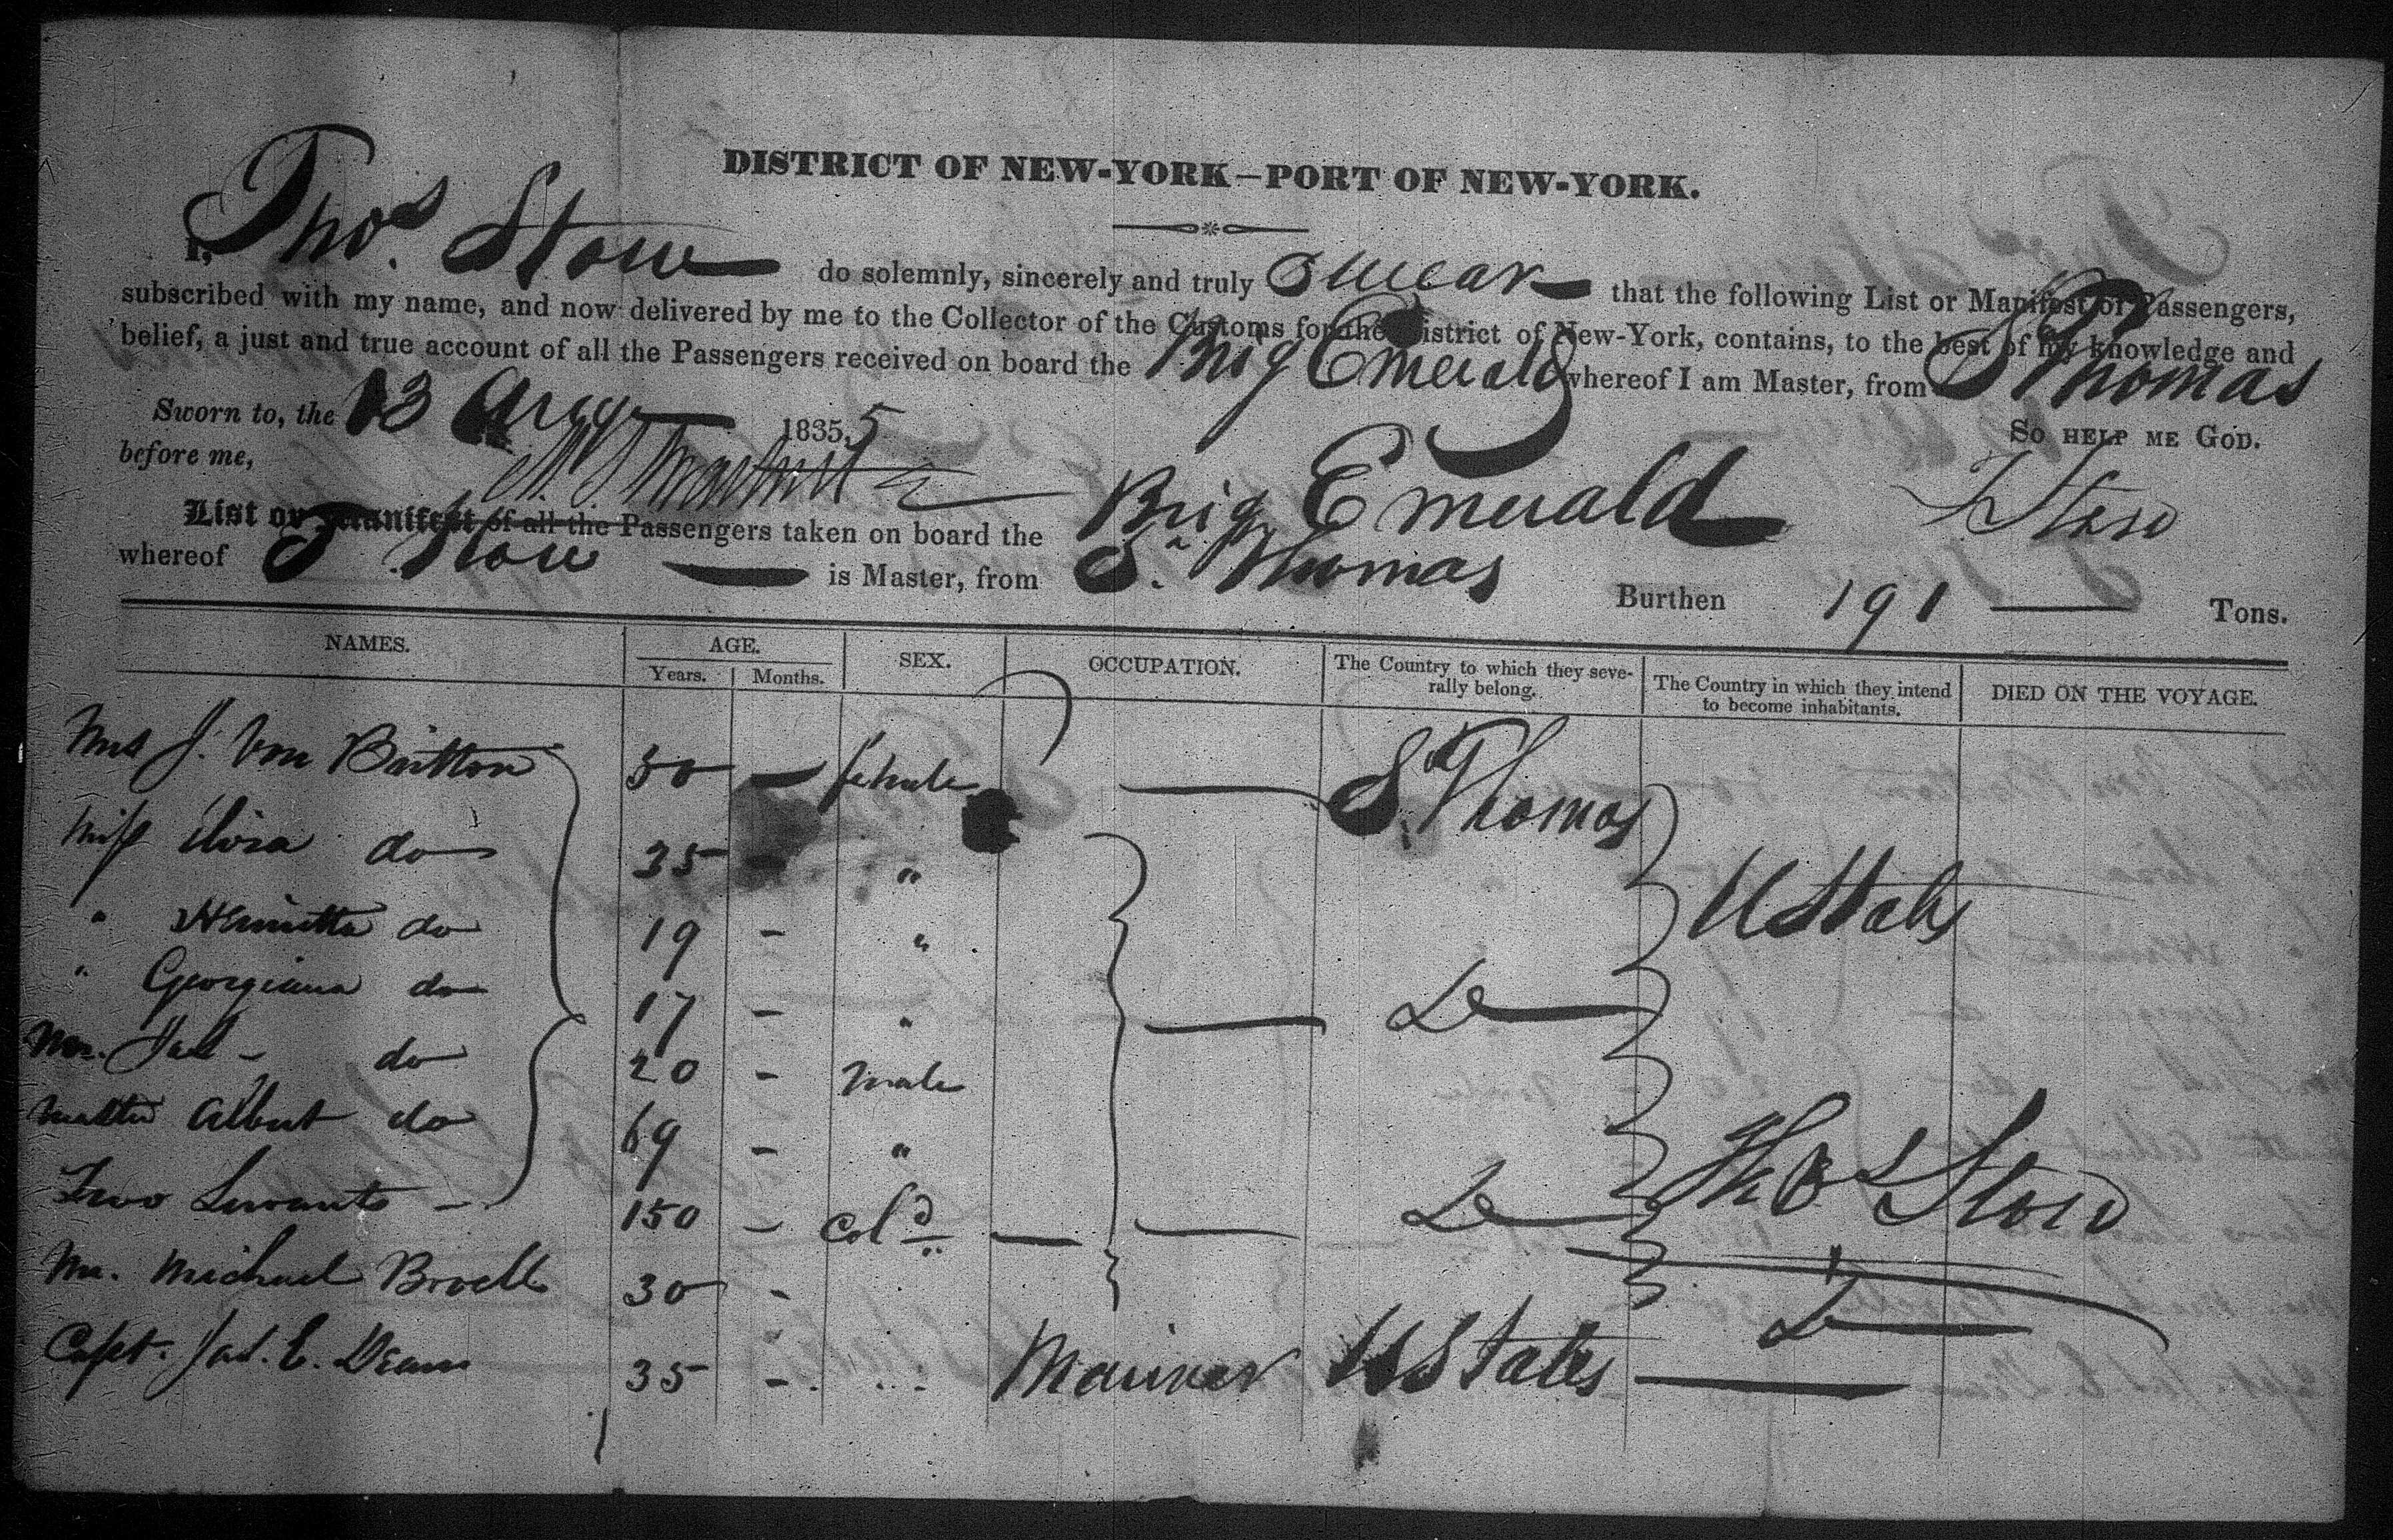 DISTRICT OF NEW-YORK—PORT OF NEW-YORK.
I, Thos. Stow do solemnly, sincerely and truly Swear that the following List or Manifest of Passengers,
subscribed with my name, and now delivered by me to the Collector of the Customs for the District of New-York, contains, to the best of my knowledge and
belief, a just and true account of all the Passengers received on board the Brig Emerald whereof I am Master, from St Thomas
Sworn to, the 13 Augt 1835,5 So HELP ME GOD.
before me, T Stow
List or Manifest of all the Passengers taken on board the Brig Emerald
whereof T Stow is Master, from St. Thomas Burthen 191 Tons.
NAMES. AGE. SEX. OCCUPATION. The Country to which they seve- The Country in which they intend DIED ON THE VOYAGE.
Years. Months. rally belong. to become inhabitants.
Mrs J. Von Britton 50 — female — St. Thomas
Miss do 35 "
" Henrietta do 19 - " U States
" Georgiana do 17 - " — Do
Mr. do 20 - Male
Master Albert do 69 - "
Two Servants - 150 - Cold — — Do Thos Stow
Mr. Michael 30 - Do
Capt. Jas. E. Deam 35 - Mariner U States —